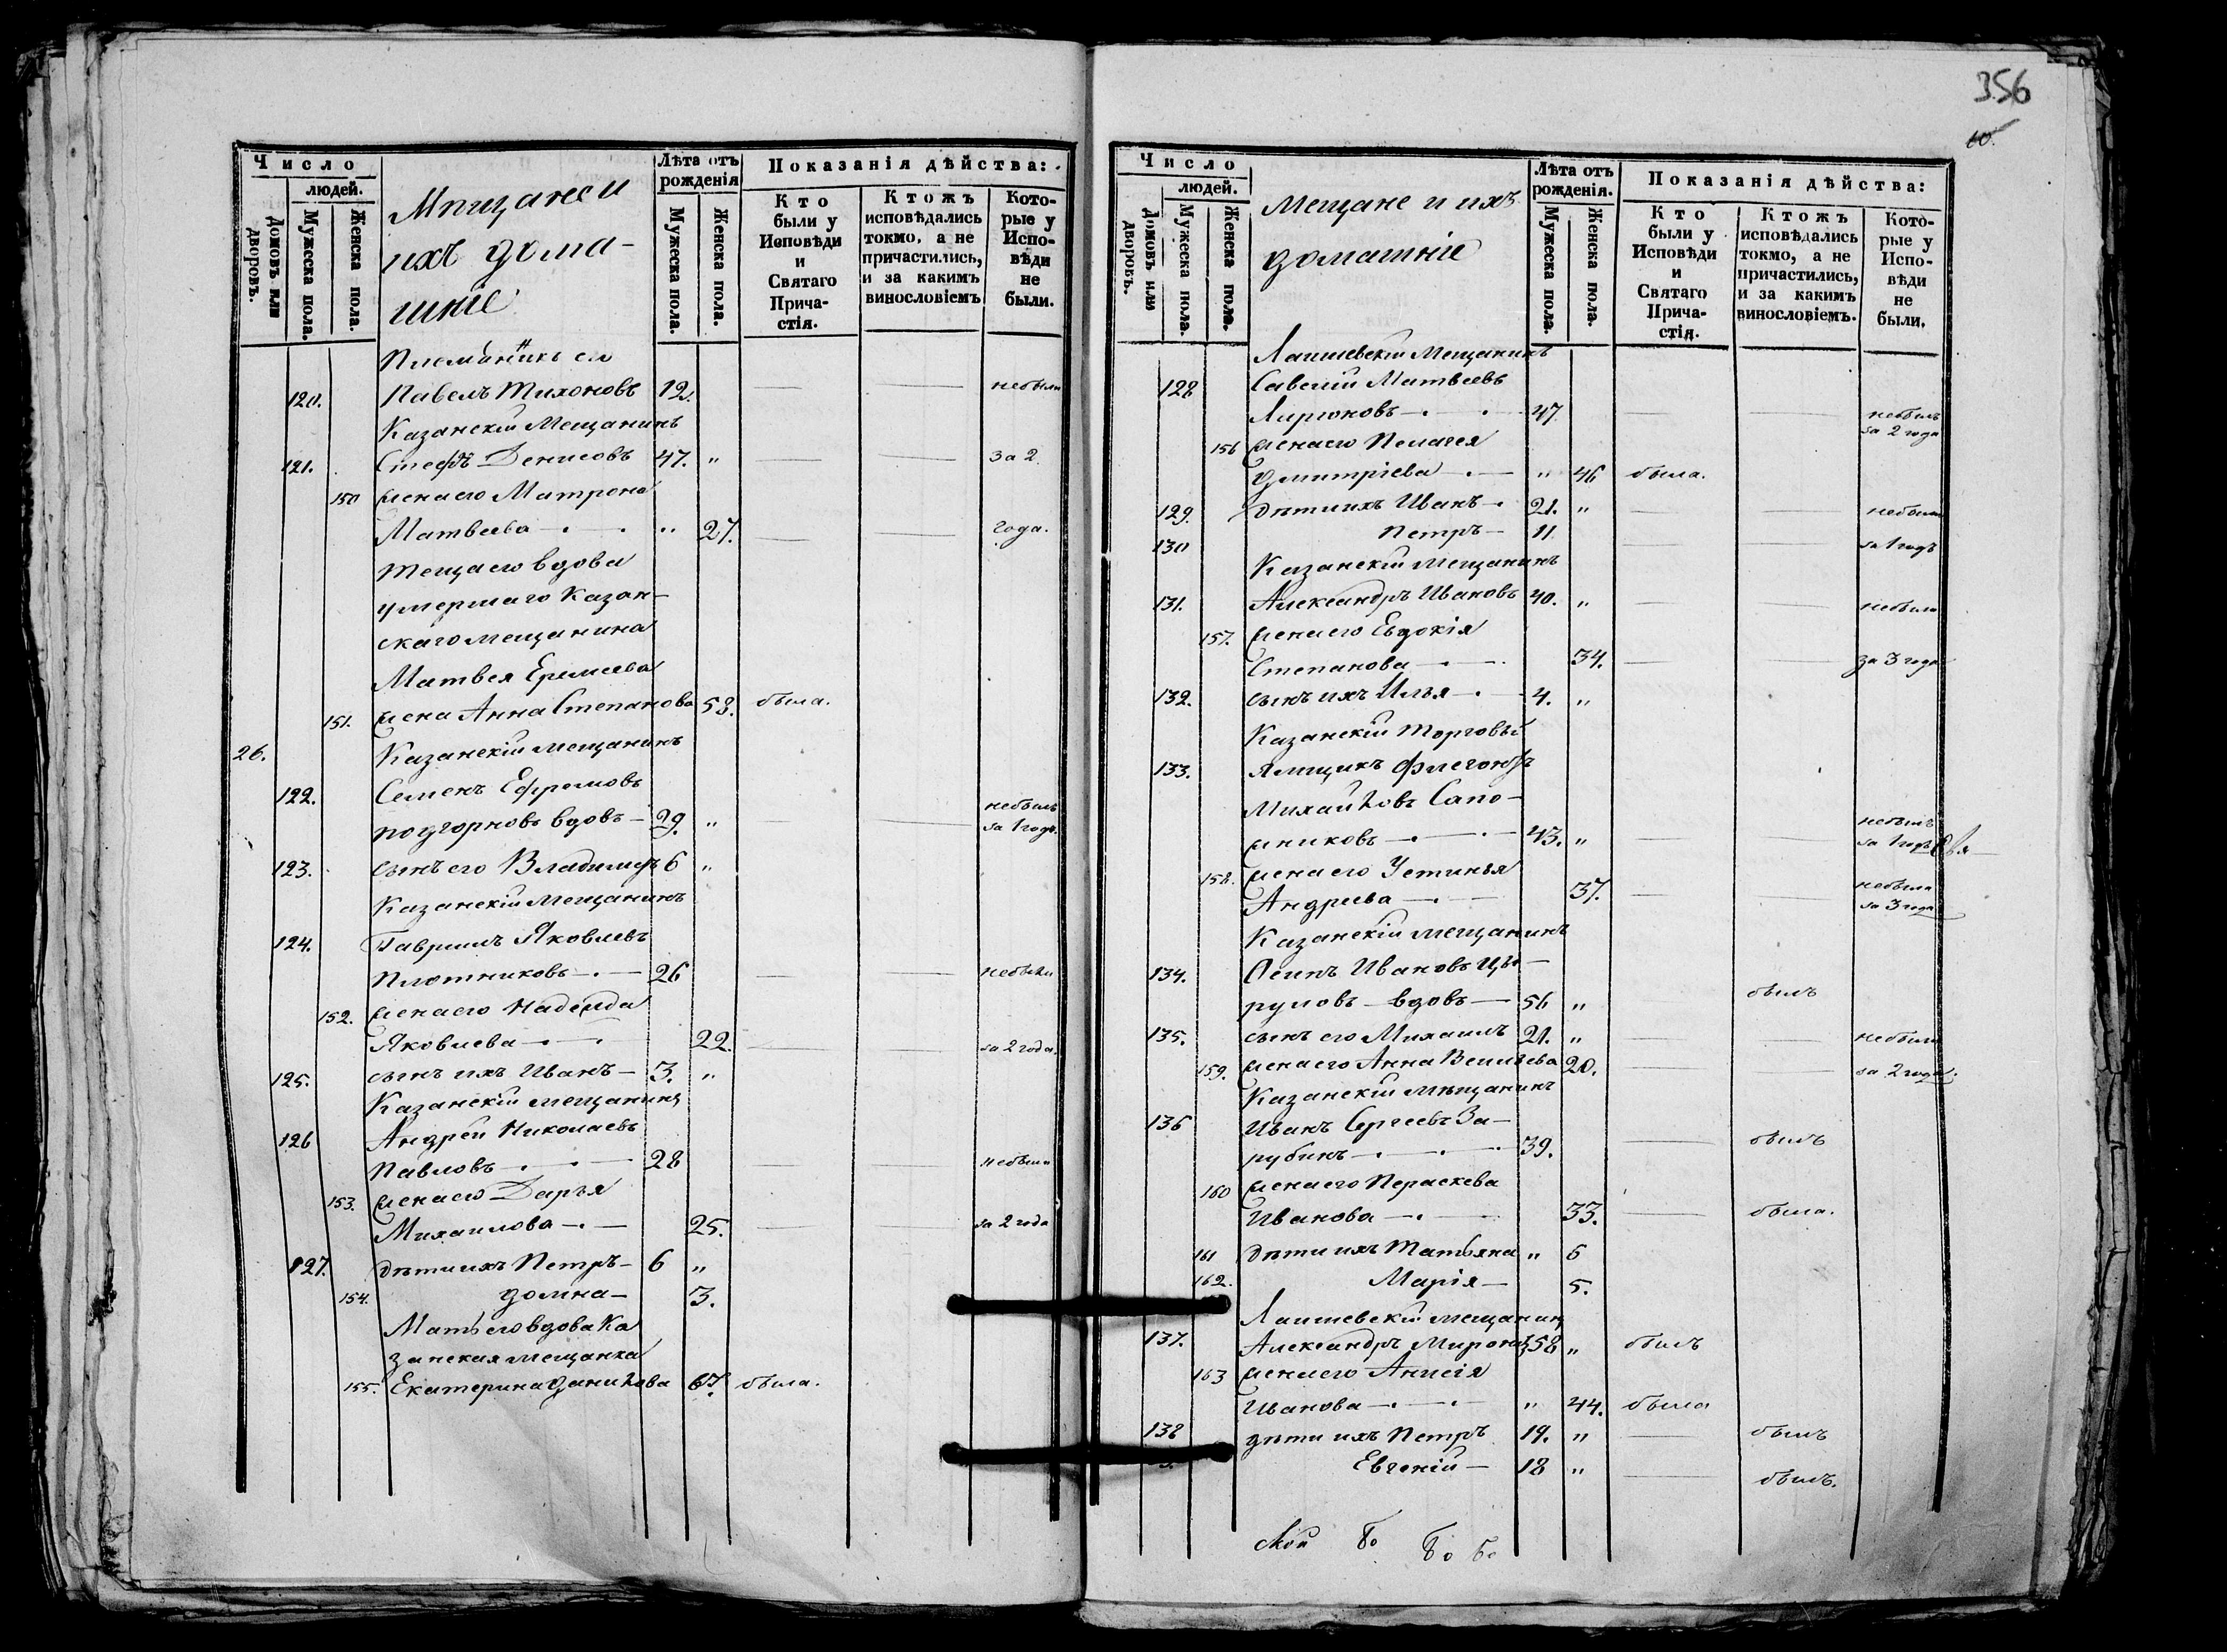 356
60.
Число
людей.
Домовъ или дворовъ.
Мужеска пола.
Женска пола.
Мещане и
ихъ дома-
шніе
Лѣта отъ рожденія
Мужеска пола.
Женска пола.
Показанія дѣйства:
Кто были у Исповѣди и Святаго Прича-стія.
Ктожъ исповѣдались токмо, а не причастились, и за какимъ винословіемъ
Кото-рые у Испо-вѣди не были.
Племянникъ его
120. Павелъ Тихоновъ 12. — — небыли
Казанскій Мещанинъ
121. Стефъ Денисовъ 47. " — — за 2
150 жена его Матрона
Матвеева — " 27. — — года.
теща его вдова
умершаго Казан-
скаго мещанина
Матвея Еремеева
151. жена Анна Степанова 53. была.
26. Казанскій мещанинъ
122. Семенъ Ефремовъ
Подгорновъ вдовъ — 29. " — — небылъ за 1 годъ.
123. сынъ его Владимиръ 6 "
Казанскій Мещанинъ
124. Гаврилъ Яковлевъ
Плотниковъ — 26 — — небыли
152. жена его Надежда
Яковлева — 22. — — за 2 года.
125. сынъ ихъ Иванъ — 3. "
Казанскій мещанинъ
126 Андрей Николаевъ
Павловъ — 28 — — небыли
153. жена его Дарья
Михаилова — 25. — за 2 года
127. дѣти ихъ Петръ — 6 "
154. Домна — 3.
Мать его вдова Ка
занская мещанка
155. Екатерина Данилова 67. была.
Число
людей.
Домовъ или дворовъ.
Мужеска пола.
Женска пола.
Мещане и ихъ
домашніе
Лѣта отъ рожденія.
Мужеска пола.
Женска пола.
Показанія дѣйства:
Кто были у Исповѣди и Святаго Прича-стія.
Ктожъ исповѣдались токмо, а не причастились, и за какимъ винословіемъ.
Кото-рые у Испо-вѣди не были.
Лаишевскій Мещанинъ
128 Савелій Матвеевъ
47. — — небылъ за 2 года
156 жена его Пелагея
Дмитріева — " 46 была.
129. дѣти ихъ Иванъ — 21. " — — небыли
130 Петръ — 11. — — за 1 годъ
Казанскій мещанинъ
131. Александръ Ивановъ 40. " — — небыли
157. жена его Евдокія
Степанова — 34. — — за 3 года
132. сынъ ихъ Илья — 4. "
Казанскій торговый
133. Ямщикъ Флегонтъ
Михайловъ Сапо-
жниковъ — 43. " — — небылъ за 1 годъ
158. жена его Устинья
Андреева — 37. — — небыла за 3 года
Казанскій мещанинъ
134. Осипъ Ивановъ Цы-
руловъ — вдовъ — 56 " былъ
135. сынъ его Михаилъ 21. " — — небыли
159. жена его Анна Васильева 20. — — за 2 года.
Казанскій мѣщанинъ
136 Иванъ Сергеевъ За-
рубинъ — 39. — былъ
160 жена его Параскева
Иванова — 33. — была.
161 дѣти ихъ Татьяна " 6
162. Марія — 5.
Лаишевскій мещанинъ
137. Александръ Мироновъ 58 " былъ
163 жена его Анисія
Иванова — " 44. была
138 дѣти ихъ Петръ 19. " — былъ
Евгеній — 18 " — былъ.